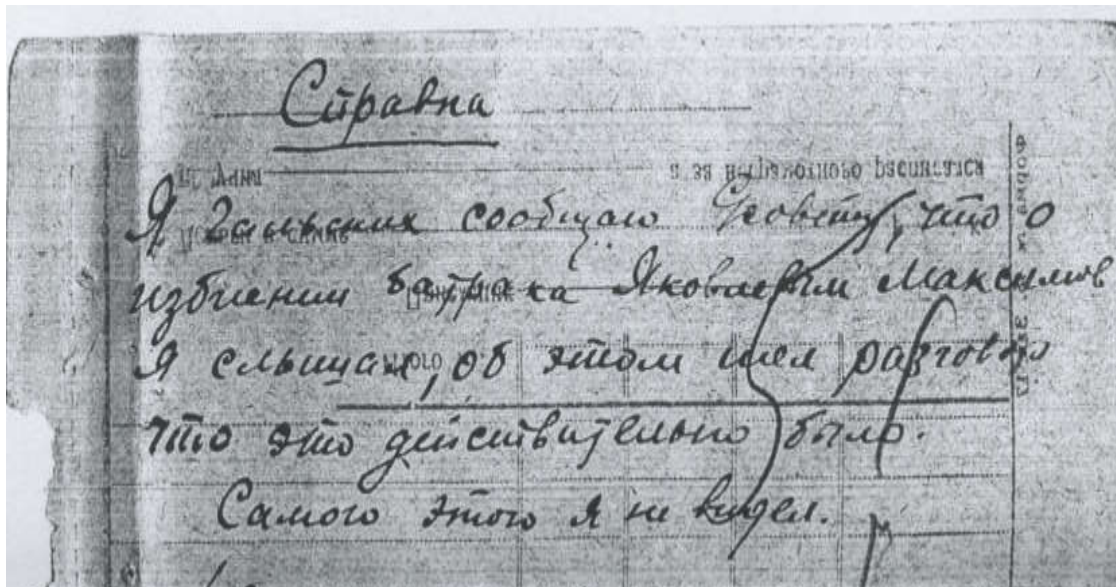 Справка
Я сообщаю что о
избиении батрака Яковлевым Максимов
Я слышал, об этом шел разговор
что это действительно было.
Самого этого я не видел.